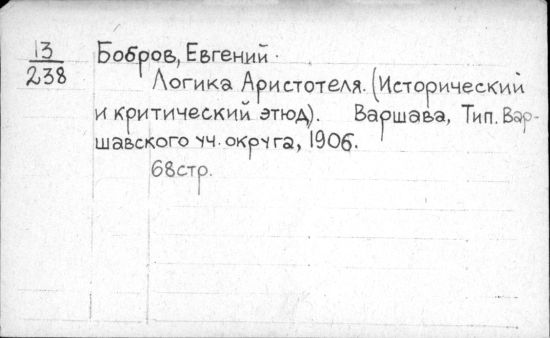 13
238
Бобров, Евгений.
Логика Аристотеля. (Исторический
и критический этюд). Варшава, Тип. Вар-
шавского уч. округа, 1906.
68стр.